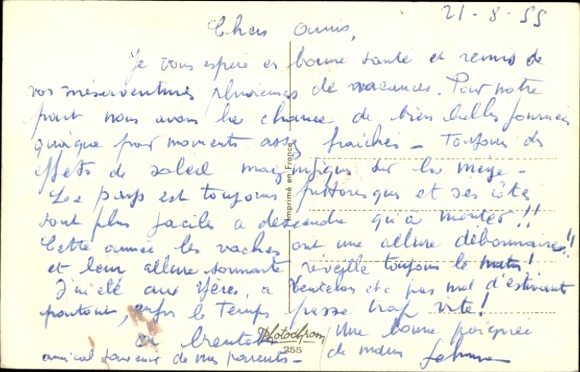 21-8-55
Chers amis,
Je vous espère en bonne santé et remis de
vos mésaventures pluvieuses de vacances. Pour notre
part nous avons la chance de bien belles journées
quoique par moments assez fraîches - Toujours des
effets de soleil magnifiques sur la Meije -
Le pays est toujours pittoresque et ses côtes
sont plus faciles à descendre qu'à monter!!
Cette année les vaches ont une allure débonnaire!!
et leur allure sonnante réveille toujours le matin!
J'ai été aux Hières, à Ventelon etc pas mal d'estivants
partout, enfin le temps passe trop vite!
Une bonne poignée
de mains
amical souvenir de mes parents -
Imprimé en France
Photochrom
255